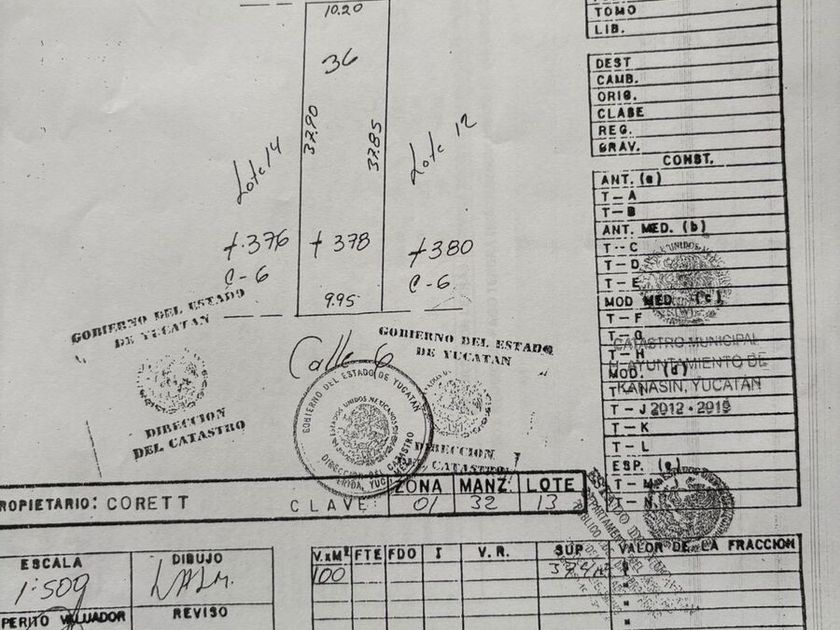 10.20
36
37.90
37.85
Lote 14
Lote 12
+376
+378
+380
C-6
C-6
9.95
Calle 6
GOBIERNO DEL ESTADO
DE YUCATAN
DIRECCION
DEL CATASTRO
GOBIERNO DEL ESTADO
DE YUCATAN
DIRECCION
CATASTRO
GOBIERNO DEL ESTADO DE YUCATAN
ESTADOS UNIDOS MEXICANOS
DIRECCION DEL CATASTRO
TOMO
LIB.
DEST
CAMB.
ORIG.
CLASE
REG.
GRAV.
CONST.
ANT. (a)
T-A
T-B
ANT. MED. (b)
T-C
T-D
T-E
MOD MED. (c)
T-F
T-G
T-H
MOD. (d)
T-J
T-K
T-L
ESP. (e)
T-M
CATASTRO MUNICIPAL
AYUNTAMIENTO DE
KANASIN, YUCATAN
2012-2015
ROPIETARIO: CORETT
CLAVE
ZONA MANZ. LOTE
01 32 13
ESCALA
1:500
DIBUJO
PERITO VALUADOR
REVISO
V.xM² FTE FDO I V.R. SUP VALOR DE LA FRACCION
100